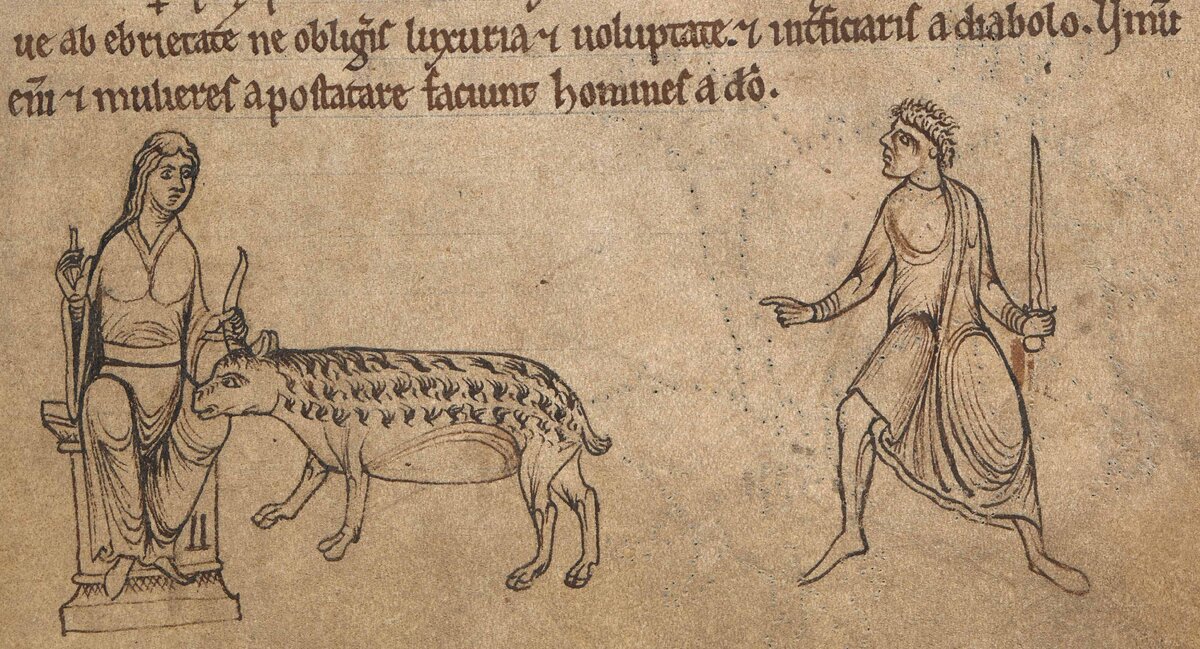 ue ab ebrietate ne obligẽis luxuria ⁊ uoluptate. ⁊ int̃ficiaris a diabolo. Vinũ
eñi ⁊ mulieres apostatare faciunt homines a dõ.